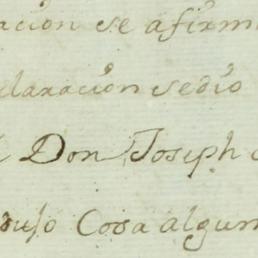 acion se afirm
claracion sedio
Don Joseph
puso Cosa algun